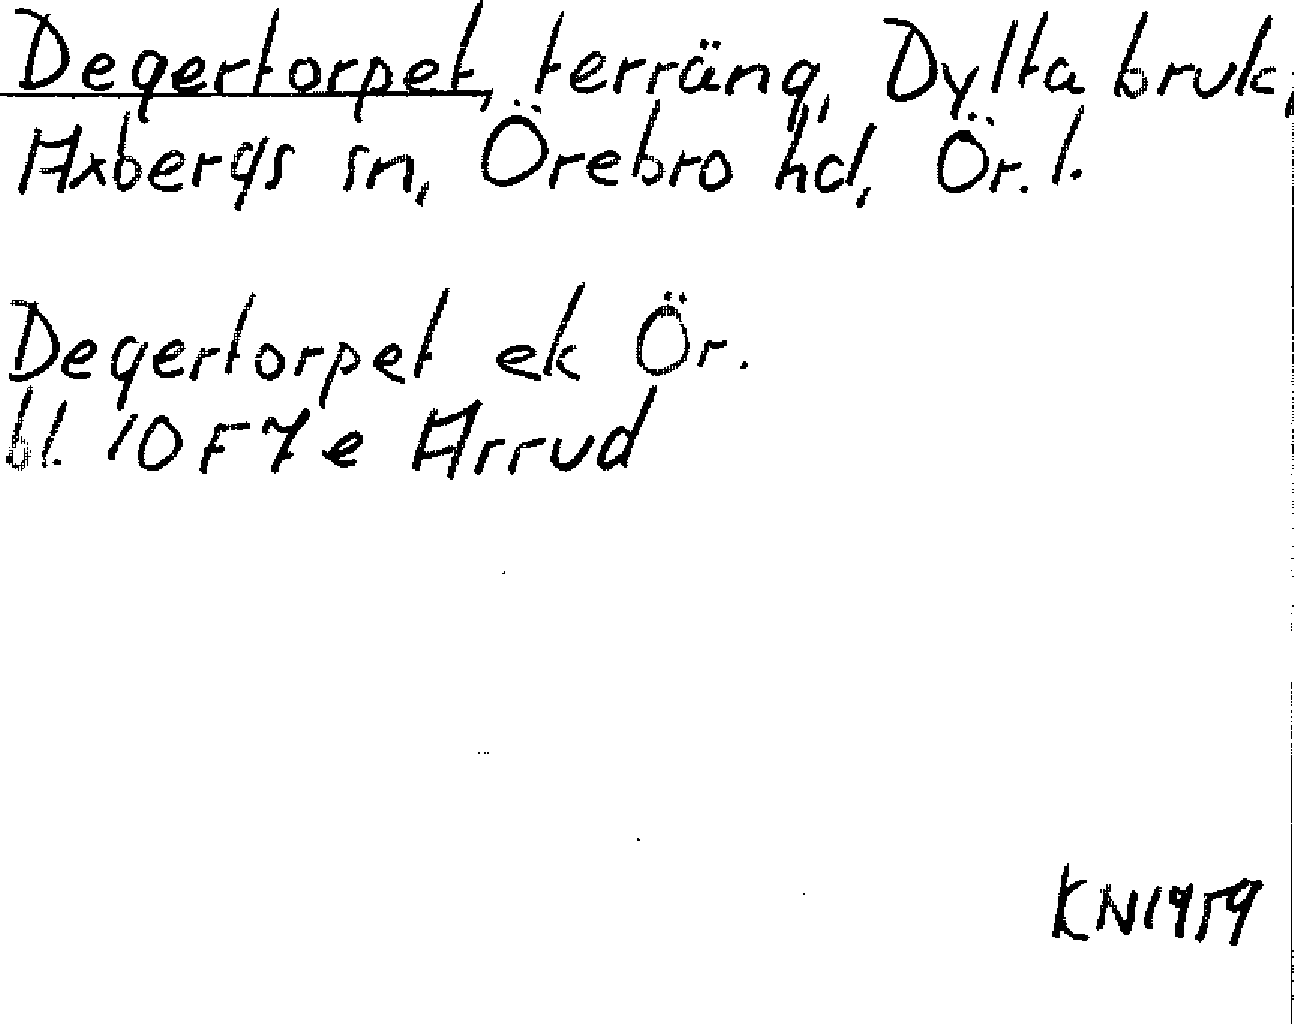 Degertorpet, terräng, Dylta bruk,
Axbergs sn, Örebro hd, Ör. l.
Degertorpet ek Ör.
bl. 10 F 7 e Arrud
KN1959